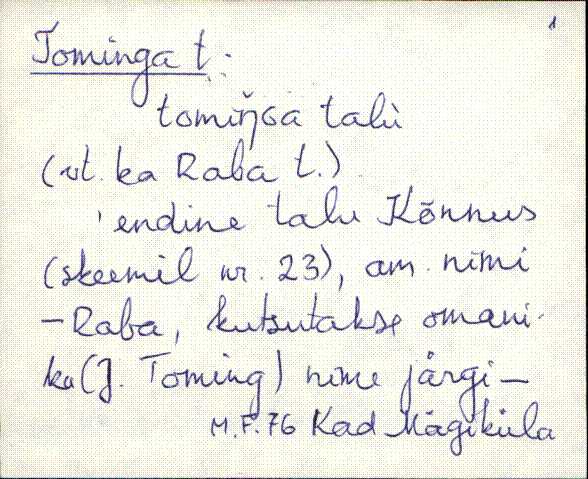 1
Tominga t.:
tomiŋ̆ɢa talù
(vt. ka Raba t.)
'endine talu Kõnnus
(skeemil nr. 23), am. nimi
– Raba, kutsutakse omani-
ku (J. Toming) nime järgi –
M.F. 76 Kad Mägiküla